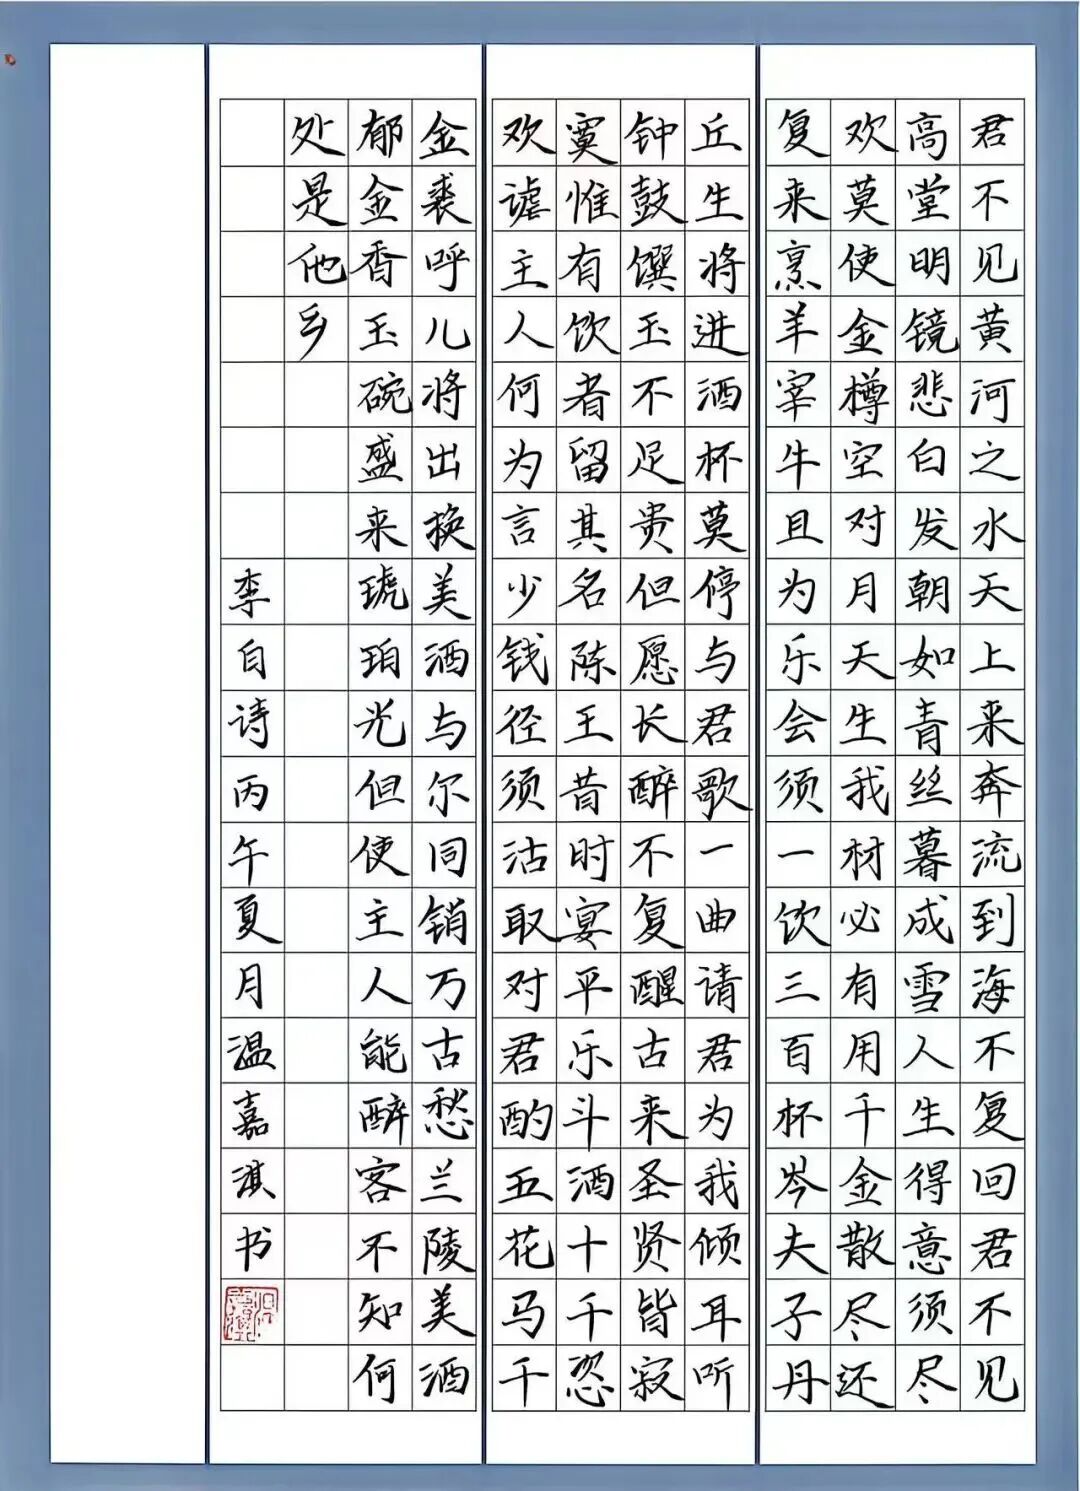 君不见黄河之水天上来奔流到海不复回君不见
高堂明镜悲白发朝如青丝暮成雪人生得意须尽
欢莫使金樽空对月天生我材必有用千金散尽还
复来烹羊宰牛且为乐会须一饮三百杯岑夫子丹
丘生将进酒杯莫停与君歌一曲请君为我倾耳听
钟鼓馔玉不足贵但愿长醉不复醒古来圣贤皆寂
寞惟有饮者留其名陈王昔时宴平乐斗酒十千恣
欢谑主人何为言少钱径须沽取对君酌五花马千
金裘呼儿将出换美酒与尔同销万古愁兰陵美酒
郁金香玉碗盛来琥珀光但使主人能醉客不知何
处是他乡
李白诗丙午夏月温嘉淇书